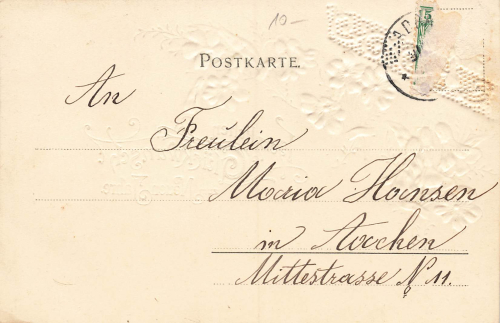 10-
POSTKARTE.
5
An
Freulein
Maria Hansen
in Aachen
Mittestrasse N 11.